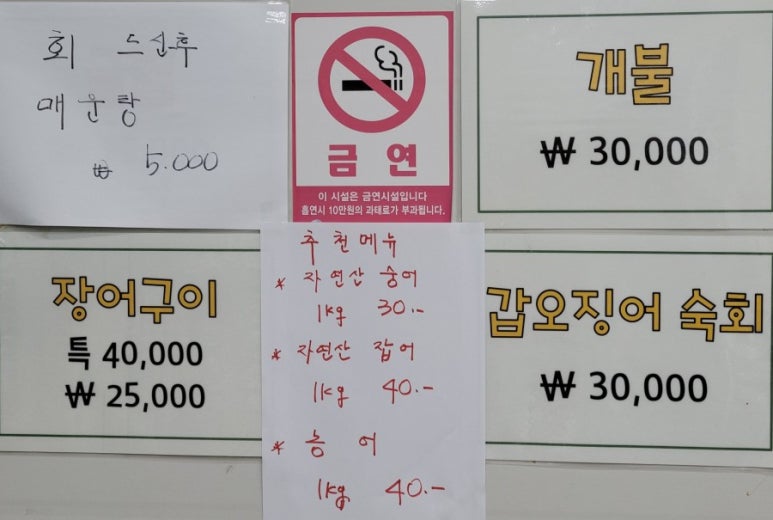 회 드신후
매운탕
₩ 5.000
금연
이 시설은 금연시설입니다
흡연시 10만원의 과태료가 부과됩니다.
개불
₩ 30,000
장어구이
특 40,000
₩ 25,000
추천메뉴
* 자연산 숭어
1kg 30.-
* 자연산 잡어
1kg 40.-
* 농어
1kg 40.-
갑오징어 숙회
₩ 30,000